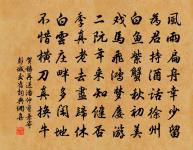 風雨扁舟寧少留
君持酒話徐州
白魚紫蟹秋初美
戲馬飛鴻夢屢游
二阮年來知健否
季真老去盡歸休
白雲庄畔多閑地
不惜橫刀真換牛